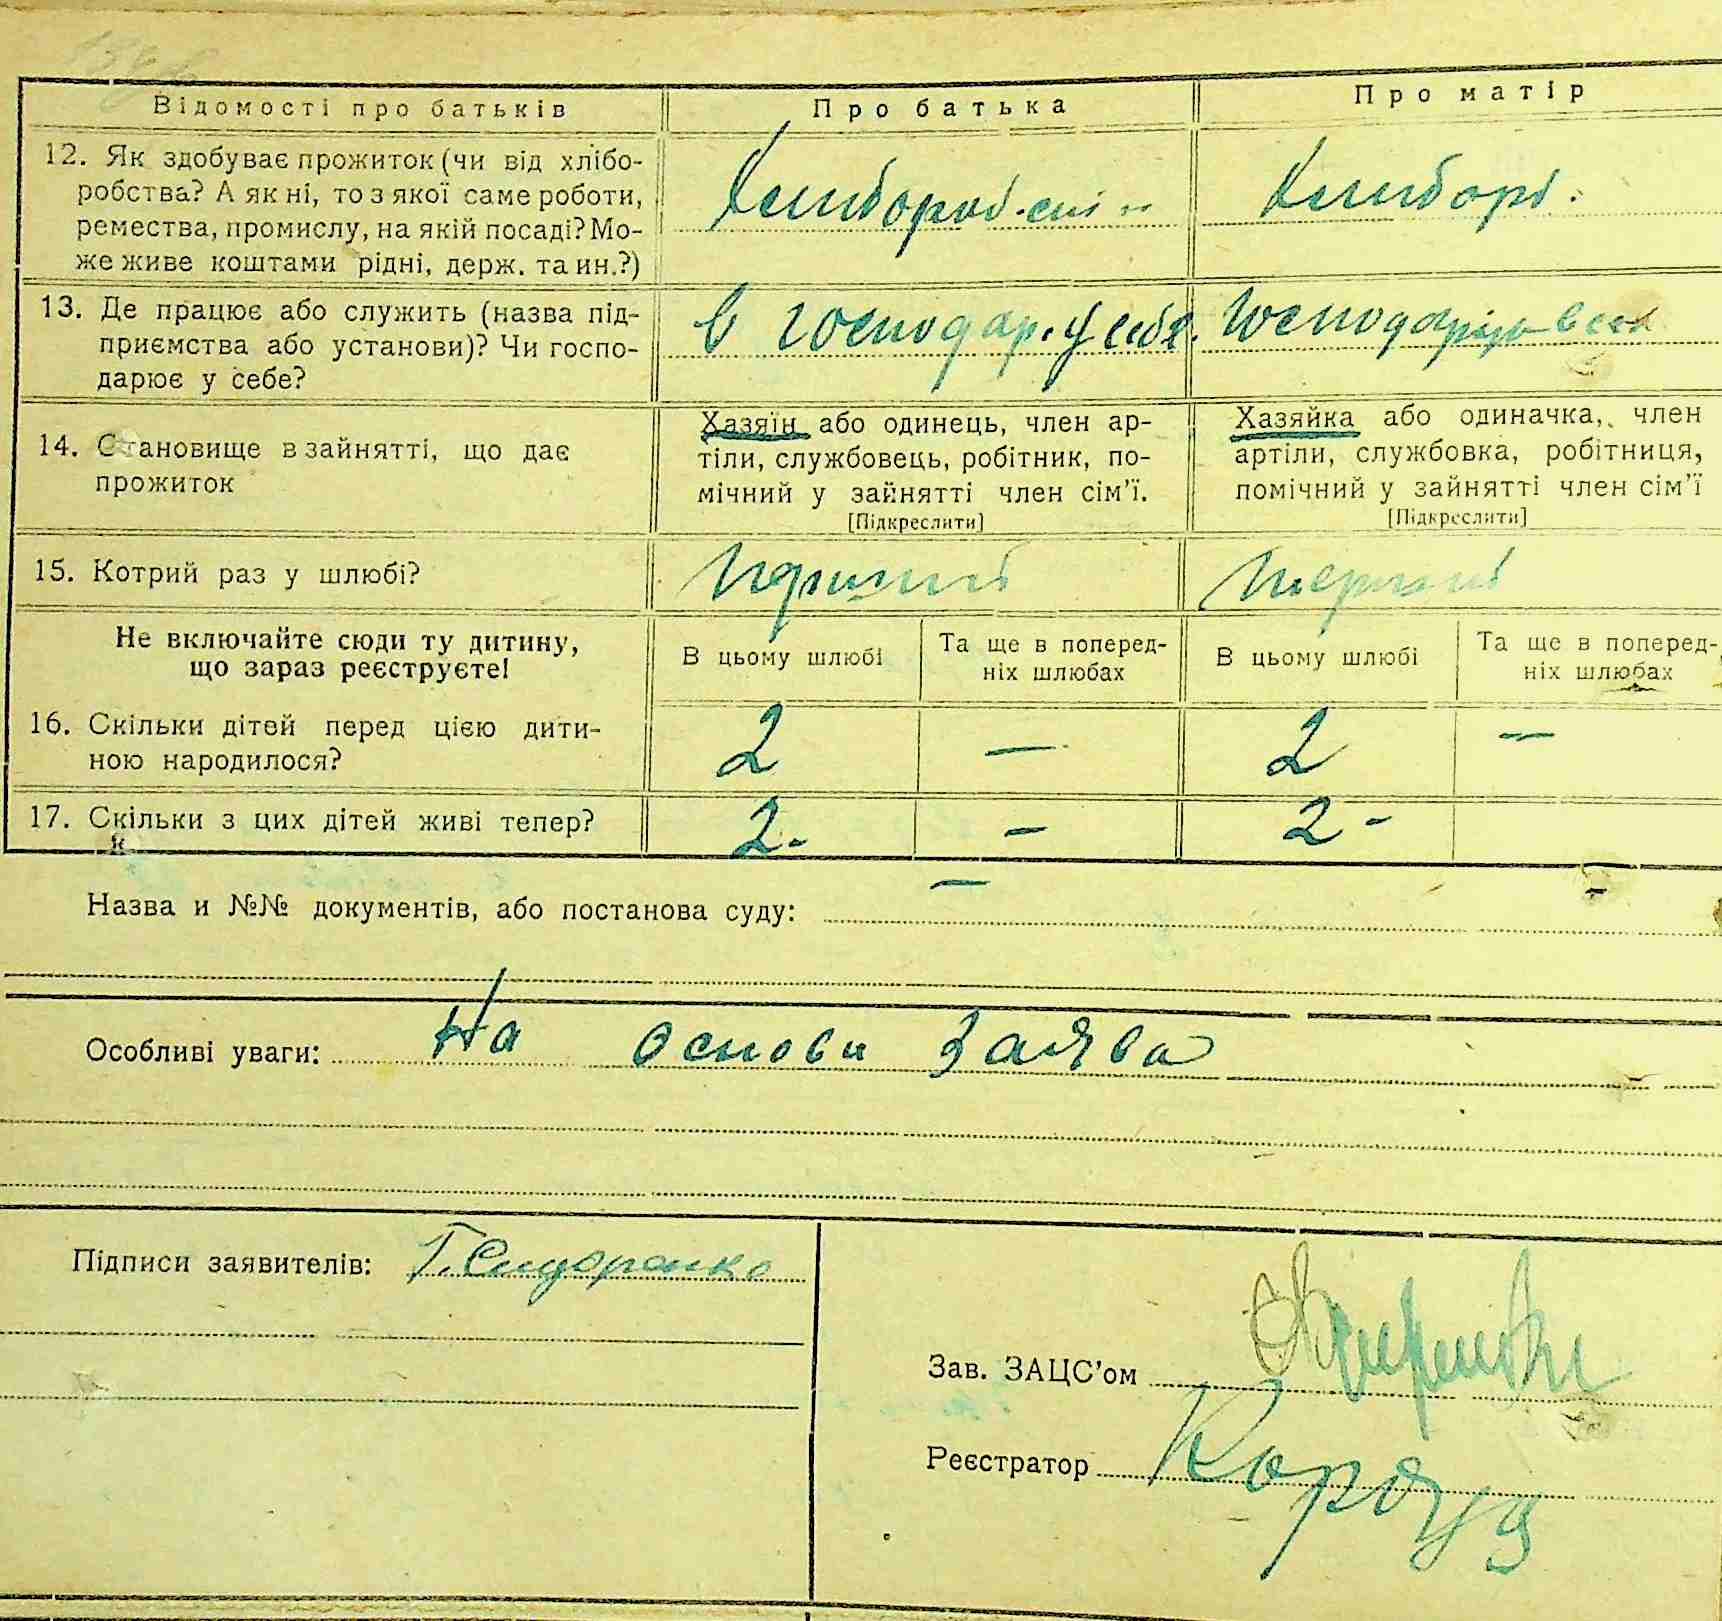 Відомості про батьків
Про батька
Про матір
12. Як здобуває прожиток (чи від хлібо-
робства? А як ні, то з якої саме роботи,
ремества, промислу, на якій посаді? Мо-
же живе коштами рідні, держ. та ин.?)
13. Де працює або служить (назва під-
приємства або установи)? Чи госпо-
дарює у себе?
в господар. у себе.
14. Становище в зайнятті, що дає
прожиток
Хазяїн або одинець, член ар-
тіли, службовець, робітник, по-
мічний у зайнятті член сім'ї.
[Підкреслити]
Хазяйка або одиначка, член
артіли, службовка, робітниця,
помічний у зайнятті член сім'ї
[Підкреслити]
15. Котрий раз у шлюбі?
Не включайте сюди ту дитину,
що зараз реєструєте!
В цьому шлюбі
Та ще в поперед-
ніх шлюбах
В цьому шлюбі
Та ще в поперед-
ніх шлюбах
16. Скільки дітей перед цією дити-
ною народилося?
2
—
2
—
17. Скільки з цих дітей живі тепер?
2-
—
2 -
Назва и №№ документів, або постанова суду: —
Особливі уваги: На основи заява
Підписи заявителів: Г. Сидоренко
Зав. ЗАЦС'ом
Реєстратор